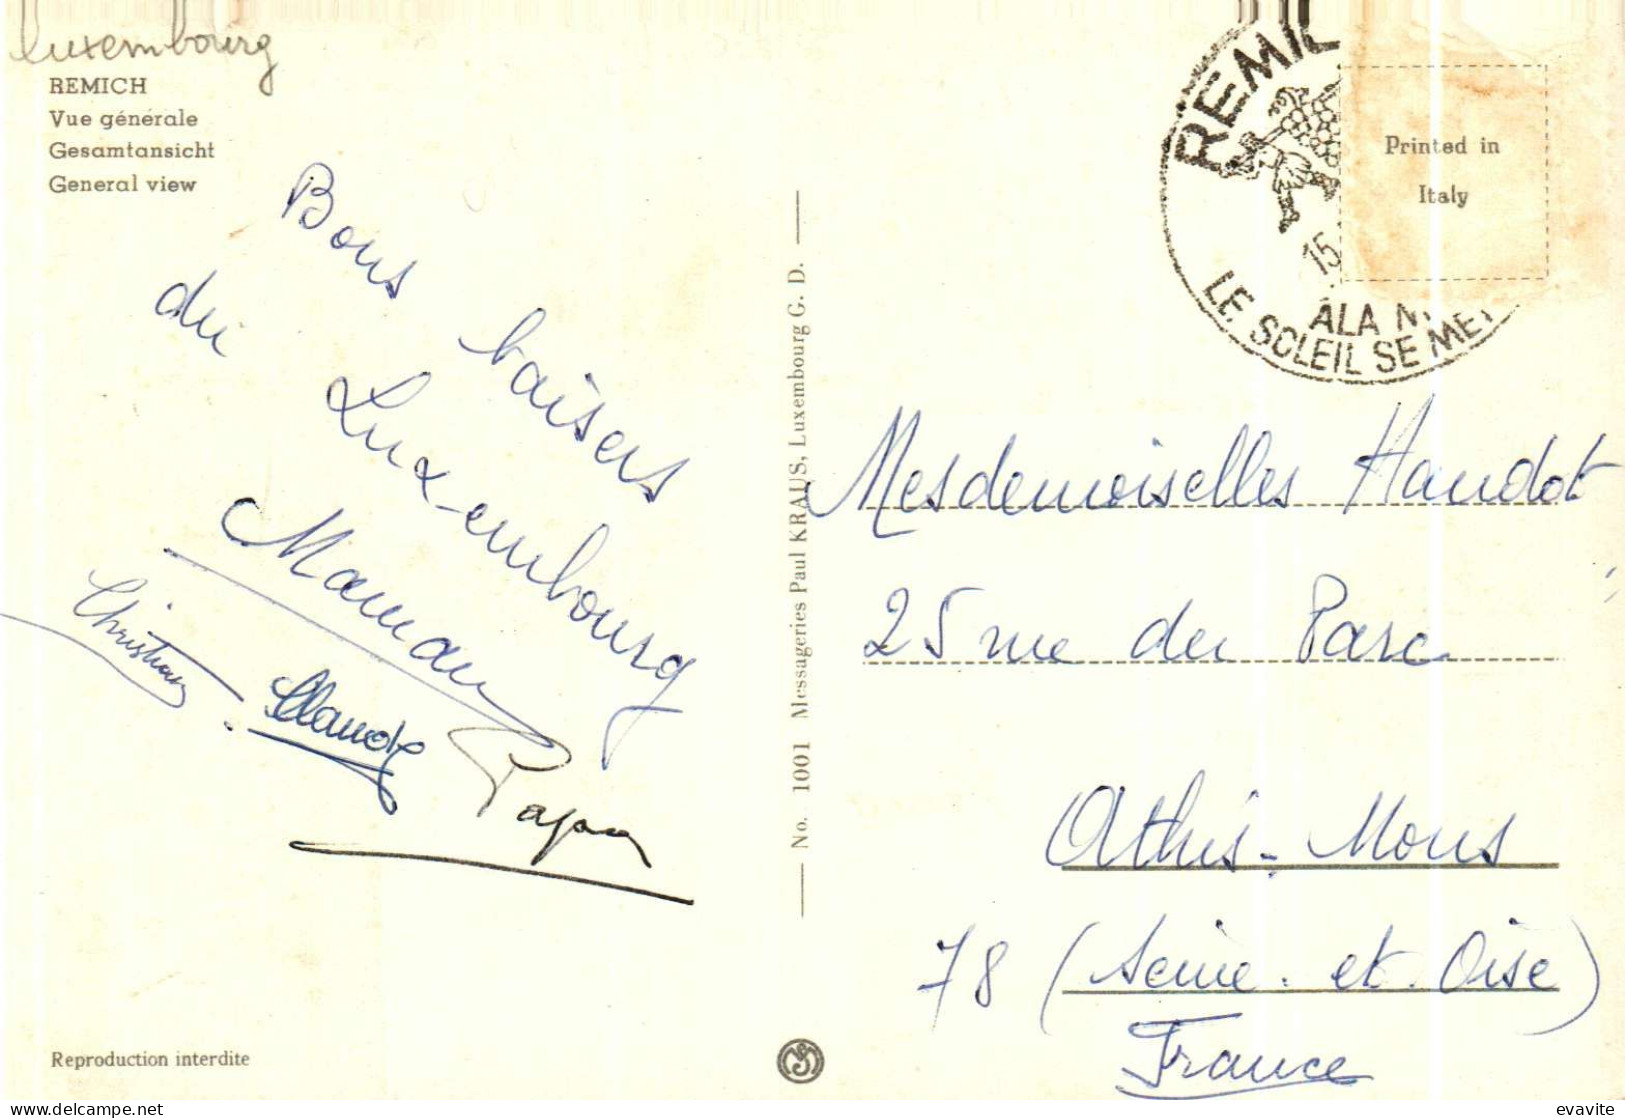 luxembourg
REMICH
Vue générale
Gesamtansicht
General view
Bons baisers
du Luxembourg
Maman
Christian
Claude
Papa
No. 1001 Messageries Paul KRAUS, Luxembourg G. D.
REMIC
15
ALA M
LE SOLEIL SE MET
Printed in
Italy
Mesdemoiselles Haudot
25 rue du Parc
Athis-Mons
78 (Seine et Oise)
France
Reproduction interdite
evavite